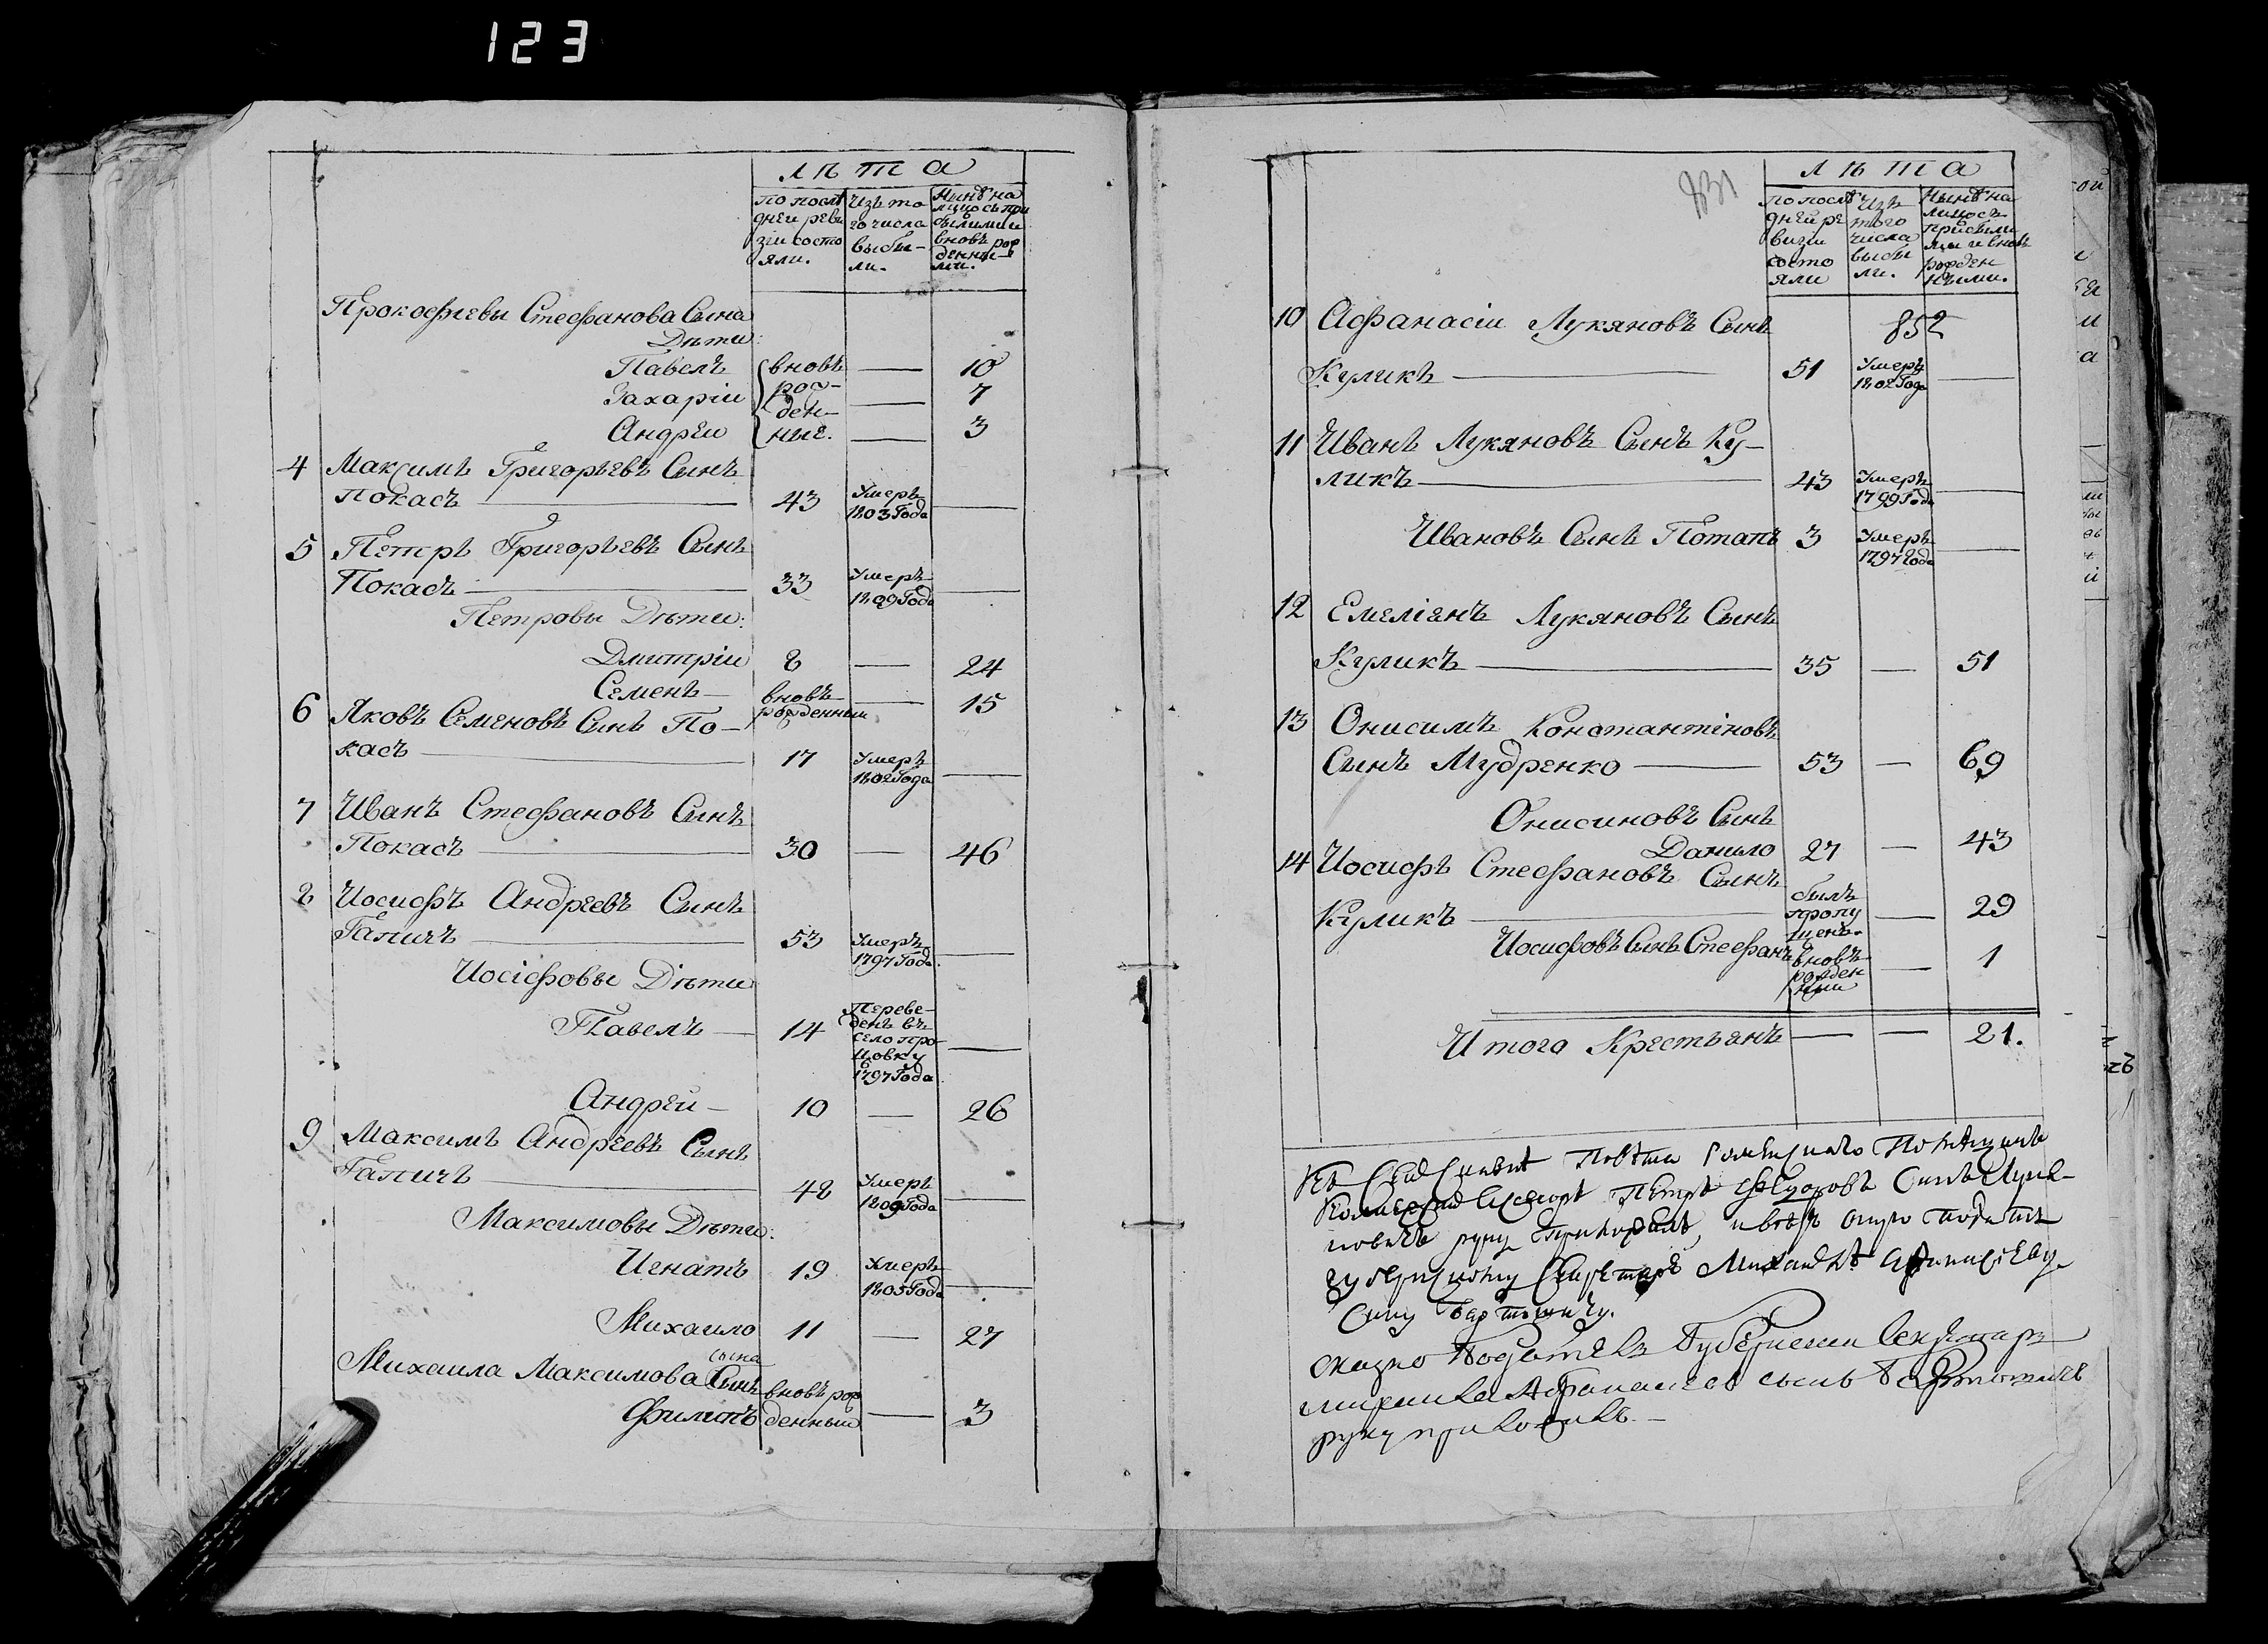 123
лѣта
по послѣ
дней реви
зіи состо
яли.
Изъ то
го числа
выбы-
ли.
Нынѣ на
лицо съ при
былими и
вновь рож
денны-
ми.
Прокофиевы Стефанова Сына
Дѣти:
Павелъ вновь — 10
Захаріи рож- — 7
ден-
Андреи ные. — 3
4 Максимъ Григорьевъ Сынъ
Покасъ 43 Умеръ
1803 Года —
5 Петръ Григорьевъ Сынъ
Покасъ 33 Умеръ
1809 Года —
Петровы Дѣти:
Дмитріи 8 — 24
Семенъ — вновь
рожденныи — 15
6 Яковъ Семеновъ Сынъ По-
касъ 17 Умеръ
1802 Года —
7 Иванъ Стефановъ Сынъ
Покасъ 30 — 46
8 Иосифъ Андреевъ Сынъ
Гапичъ 53 Умеръ
1797 Года. —
Иосіфовы Дѣти
Павелъ — 14 Переве-
денъ въ
село про-
цовку
1797 Года —
Андрей — 10 — 26
9 Максимъ Андреевъ Сынъ
Гапичъ 48 Умеръ
1809 Года —
Максимовы Дѣти:
Игнатъ 19 Умеръ
1805 Года —
Михаило 11 — 27
сына
Михаила Максимова Сынъ вновь рож
Филипъ денныи — 3
831
лѣта
по послѣ
дней ре
визіи
состо
яли
Изъ
того
числа
выбы
ли.
Нынѣ на
лицо съ
прибылы
ми и вновь
рожден
ными.
10 Афанасіи Лукяновъ Сынъ 852
Куликъ — 51 Умеръ
1802 Года —
11 Иванъ Лукяновъ Сынъ Ку-
ликъ — 43 Умеръ
1799 Года —
Ивановъ Сынъ Потапъ 3 Умеръ
1797 Года —
12 Емеліянъ Лукяновъ Сынъ
Куликъ — 35 — 51
13 Онисимъ Константіновъ
Сынъ Мудренко — 53 — 69
Онисиновъ Сынъ
Данило 27 — 43
14 Иосифъ Стефановъ Сынъ
Куликъ — былъ
пропу
щенъ. — 29
Иосифовъ Сынъ Стефанъ вновь
рожден
ныи — 1
Итого Крестьянъ — — 21.
Петръ Федоровъ Сынъ
руку приложилъ,
сыну
сказко Податель Губернскии Секретарь
Афанасиев сынъ
руку приложилъ. —